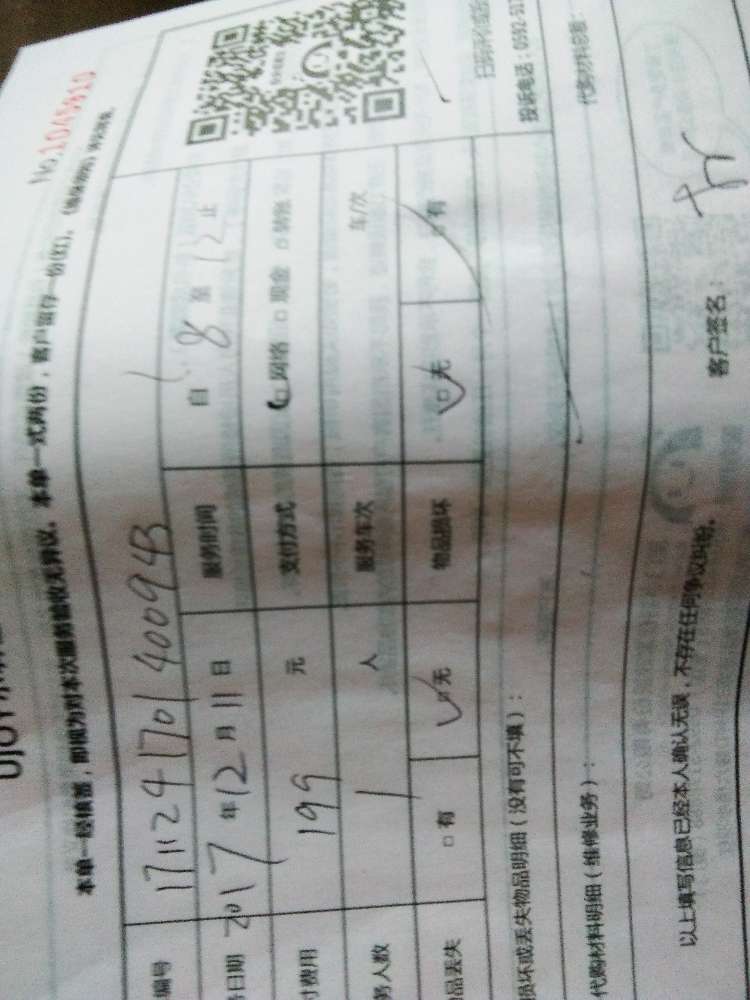 No.1045910
本单一经填签，即视为对本次服务验收无异议。本单一式两份，客户留存一份(红)。
编号 1711241701400943
日期 2017年12月11日 服务时间 自 8 至 12 止
付费用 199 元 支付方式 □网络 □现金
务人数 1 人 服务车次 车/次
品丢失 □有 □无 物品损坏 □无 □有
损坏或丢失物品明细（没有可不填）：
代购材料明细（维修业务）： 代购材料总额：
以上填写信息已经本人确认无误，不存在任何争议纠纷。 客户签名：
投诉电话：0592-517